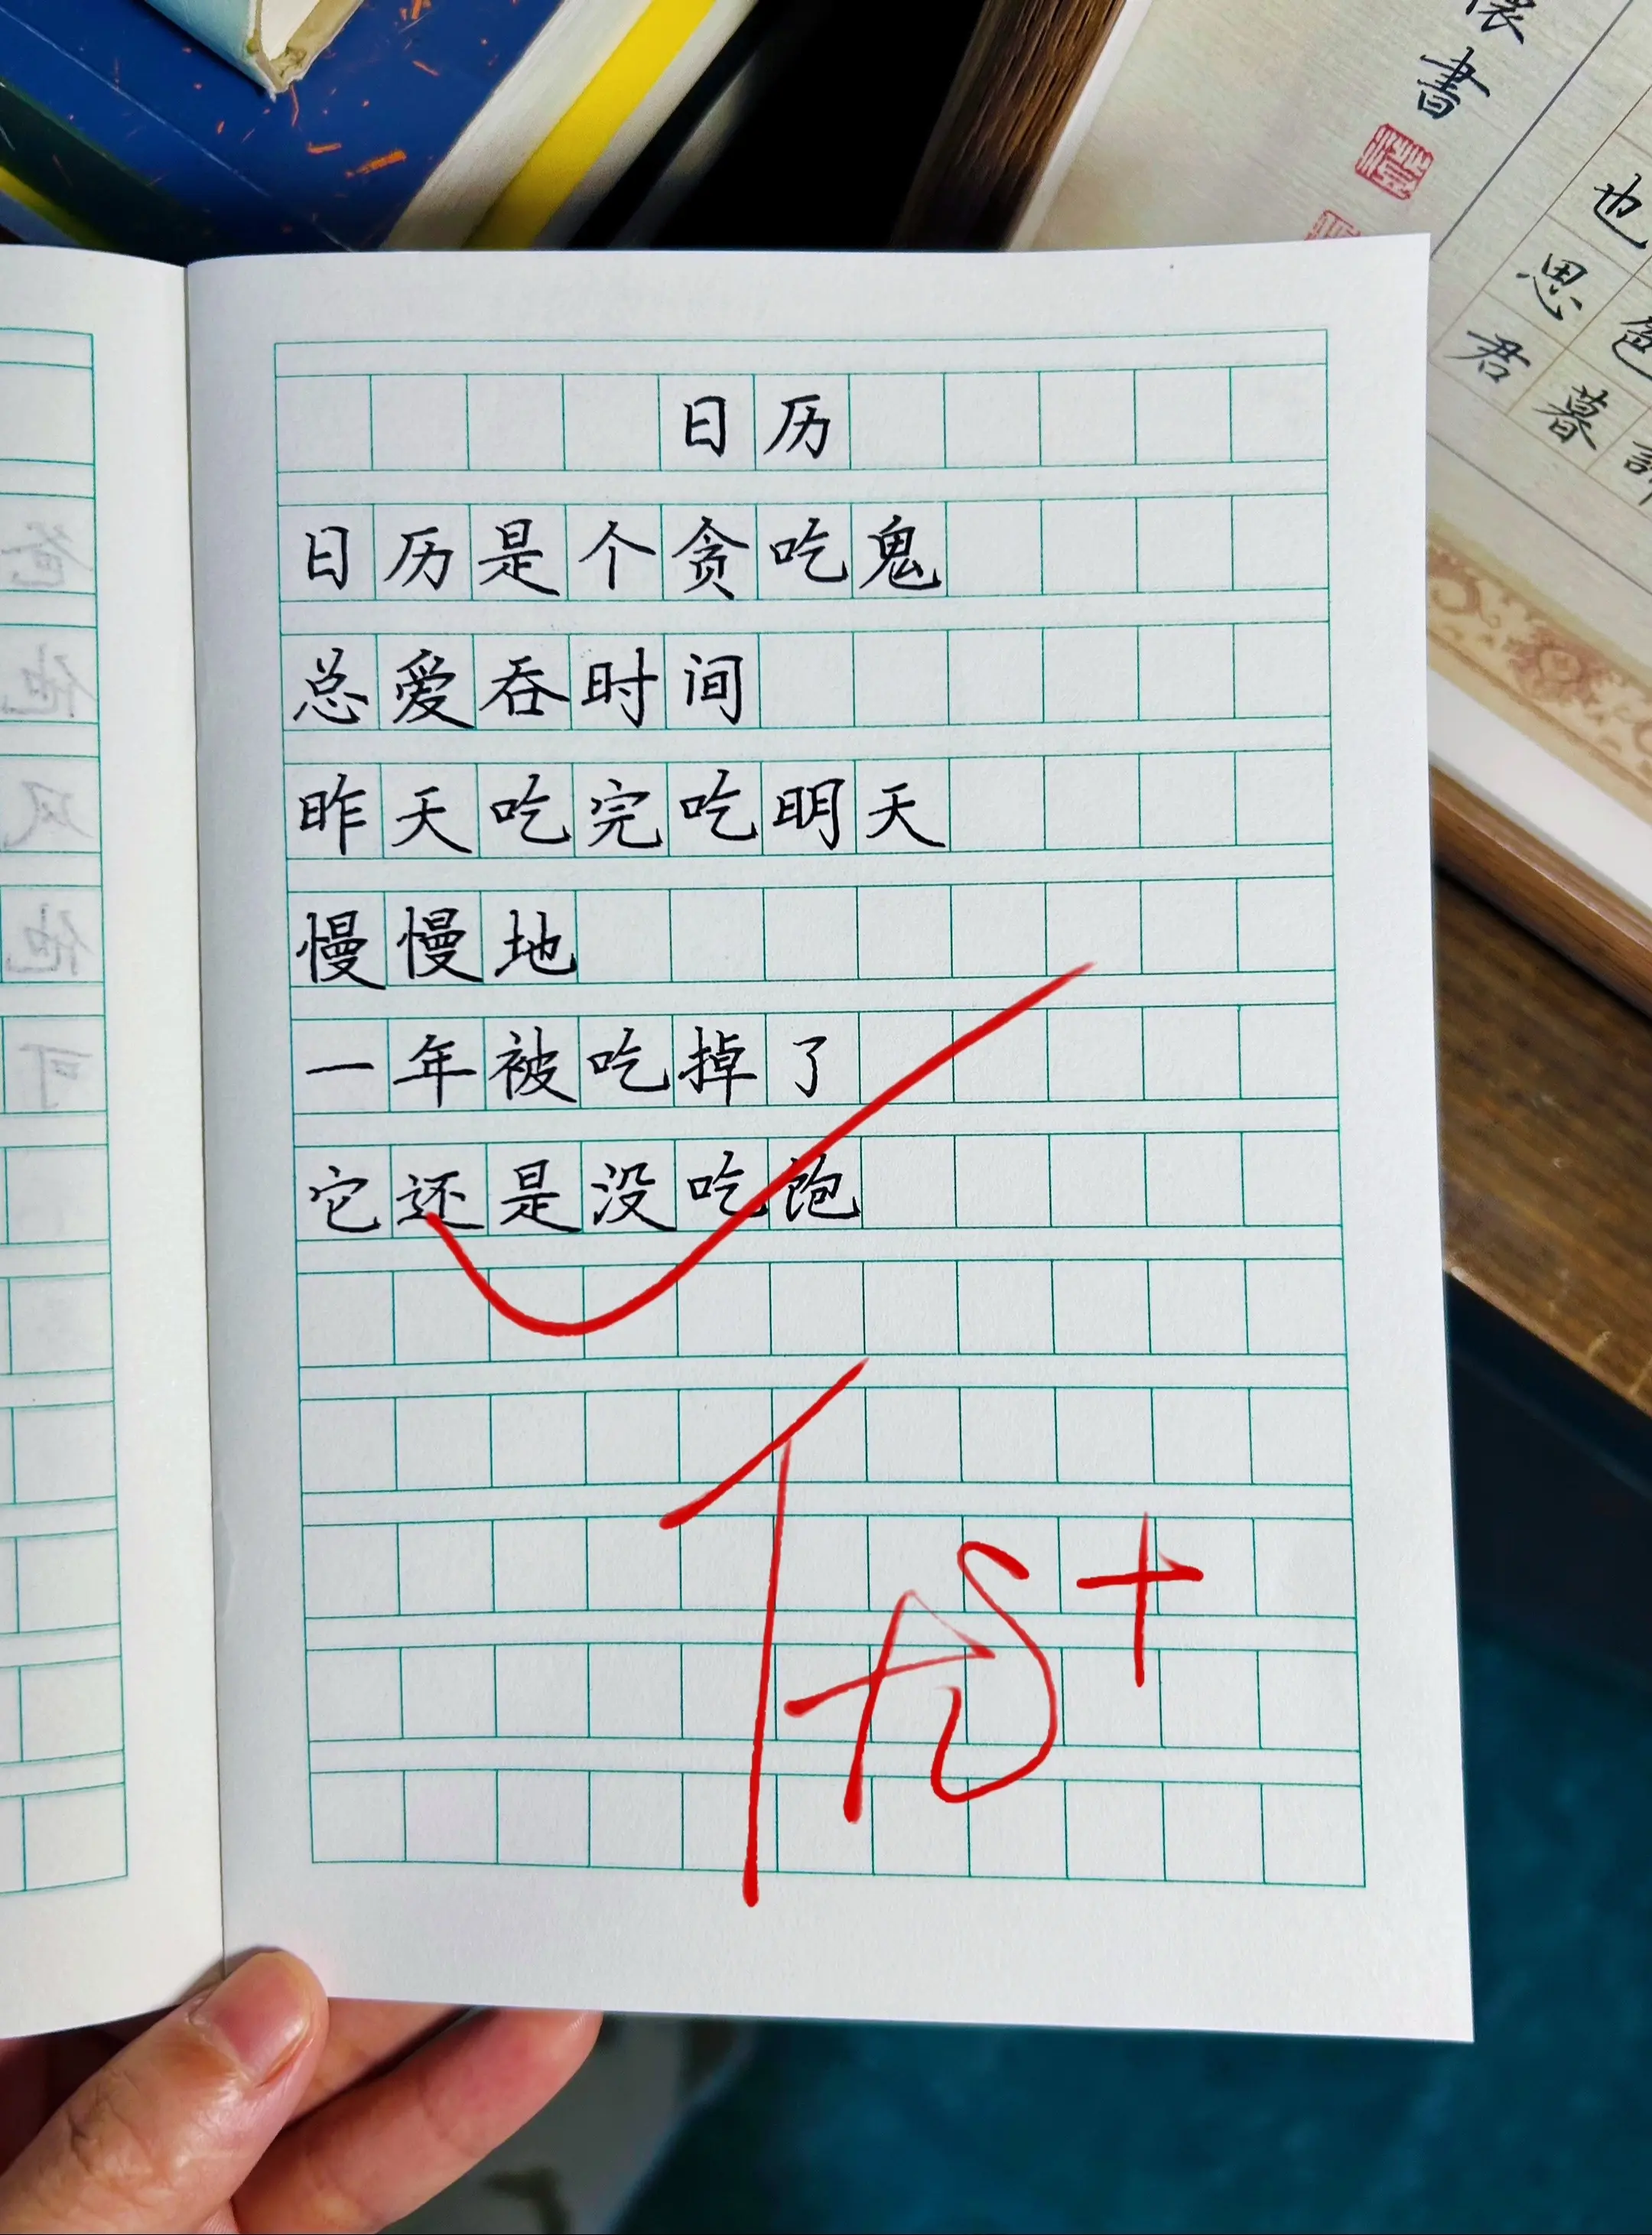 日历
日历是个贪吃鬼
总爱吞时间
昨天吃完吃明天
慢慢地
一年被吃掉了
它还是没吃饱
优+
書
也
思
君
暮